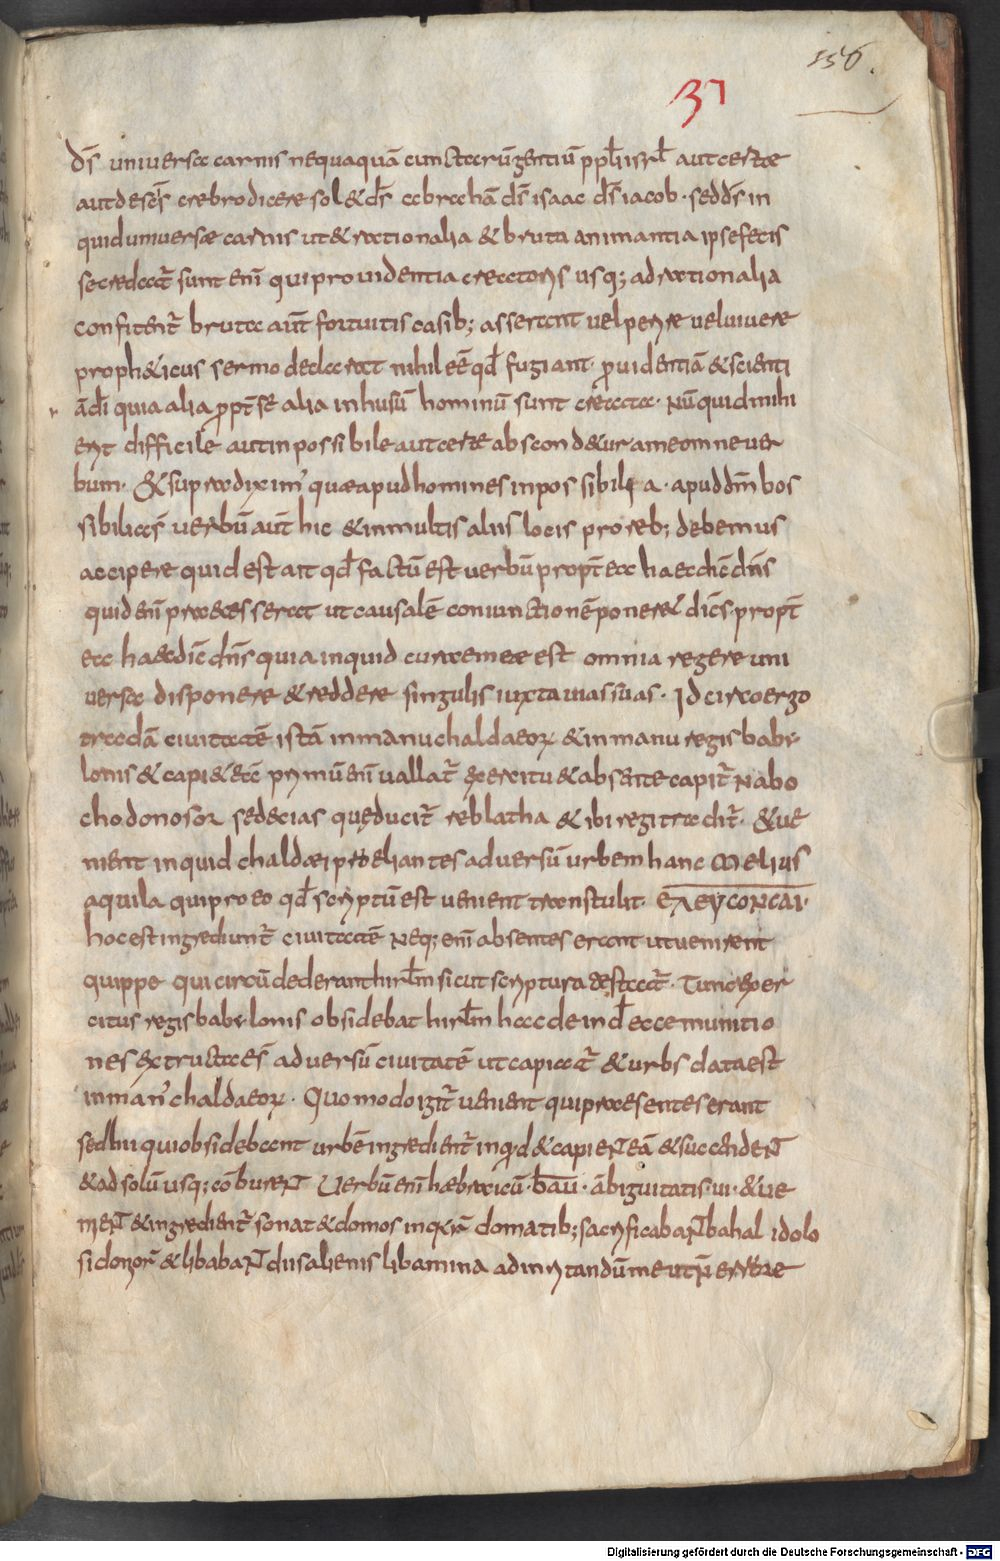 156.
37
ds̄ universae carnis nequaquā cunctarū gentiū p ppłi isrł aut certae
aut desēs crebro dicere sol & ds̄ abrahā ds̄ isaac ds̄ iacob · sed ds̄ in
quid universae carnis ut & rationalia & bruta animantia ipse fecis
se credat̄ sunt enī qui providentia creatoris usq; ad rationalia
confitent̄ bruta aūt fortuitis casib; asserant vel perire vel vivere
proph&icus sermo declarat nihil eē qđ fugiant · p̄videntiā & scienti
ā dī quia alia ꝓpt̄ se alia in husū hominū sunt creata · Nū quid mihi
erit difficile aut inpossibile aut certe abscond&ur a me omne ver
bum · & supra diximꝰ quae apud homines inpossibilia · apud dm̄ bos
sibilia ēs̄ verbū aūt hic & in multis aliis locis pro reb; debemus
accipere quid est ait qđ factū est verbū propt̄ ea haec dic̄ dn̄s
quid enī praecesserat ut causalē coniunctionē poner& dic̄s · propt̄
ea haec dic̄ dn̄s quia inquid curae meae est omnia regere uni
versa disponere & reddere singulis iuxta vias suas · Idcirco ergo
tradā civitatē istā in manu chaldaeoꝝ & in manu regis baby
lonis & capi& eā primū enī vallat̄ exercitu & absente capit̄ Nabo
chodonosor sedecias quę ducit̄ reblatha & ibi regi tradit̄ · & ve
nient inquid chaldaei proeliantes adversū urbem hanc Melius
aquila qui pro eo qđ scriptū est venient transtulit · ΕΛΕΥCΟΝCΑΙ ·
hoc est ingrediunt̄ civitatē Neq; enī absentes erant ut venirent
quippe qui circūdederant hirłm sicut scriptura destat̄ · Tunc exer
citus regis babylonis obsidebat hirłm hac deinđ ecce munitio
nes extructae s̄ adversū civitatē ut capiat̄ & urbs data est
in manꝰ chaldaeoꝝ · Quomodo igit̄ venient qui praesentes erant
sed hii qui obsidebant urbē ingredient̄ inq̇d & capieNT eā & succendeNT
& ad solū usq; cōbureNT Verbū enī hebraicū · bau · ābiguitatis · vi · & ve
nieNT & ingredient̄ sonat & domos inq̇ · domatib; sacrificabaNT bahal idolo
sidonoꝝ & libabaNT diis alienis libamina ad irritandū me ut n̄ errore
Digitalisierung gefördert durch die Deutsche Forschungsgemeinschaft - DFG